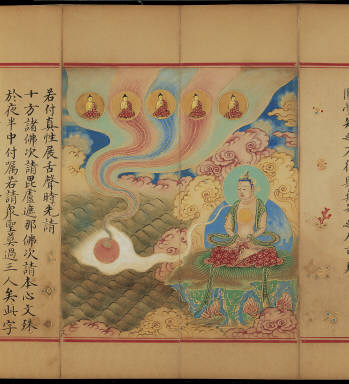 若付真性展舌聲時先請
十方諸佛次請毘盧遮那佛次請本心文殊
於夜半中付囑若請衆聖莫過三人矣此字